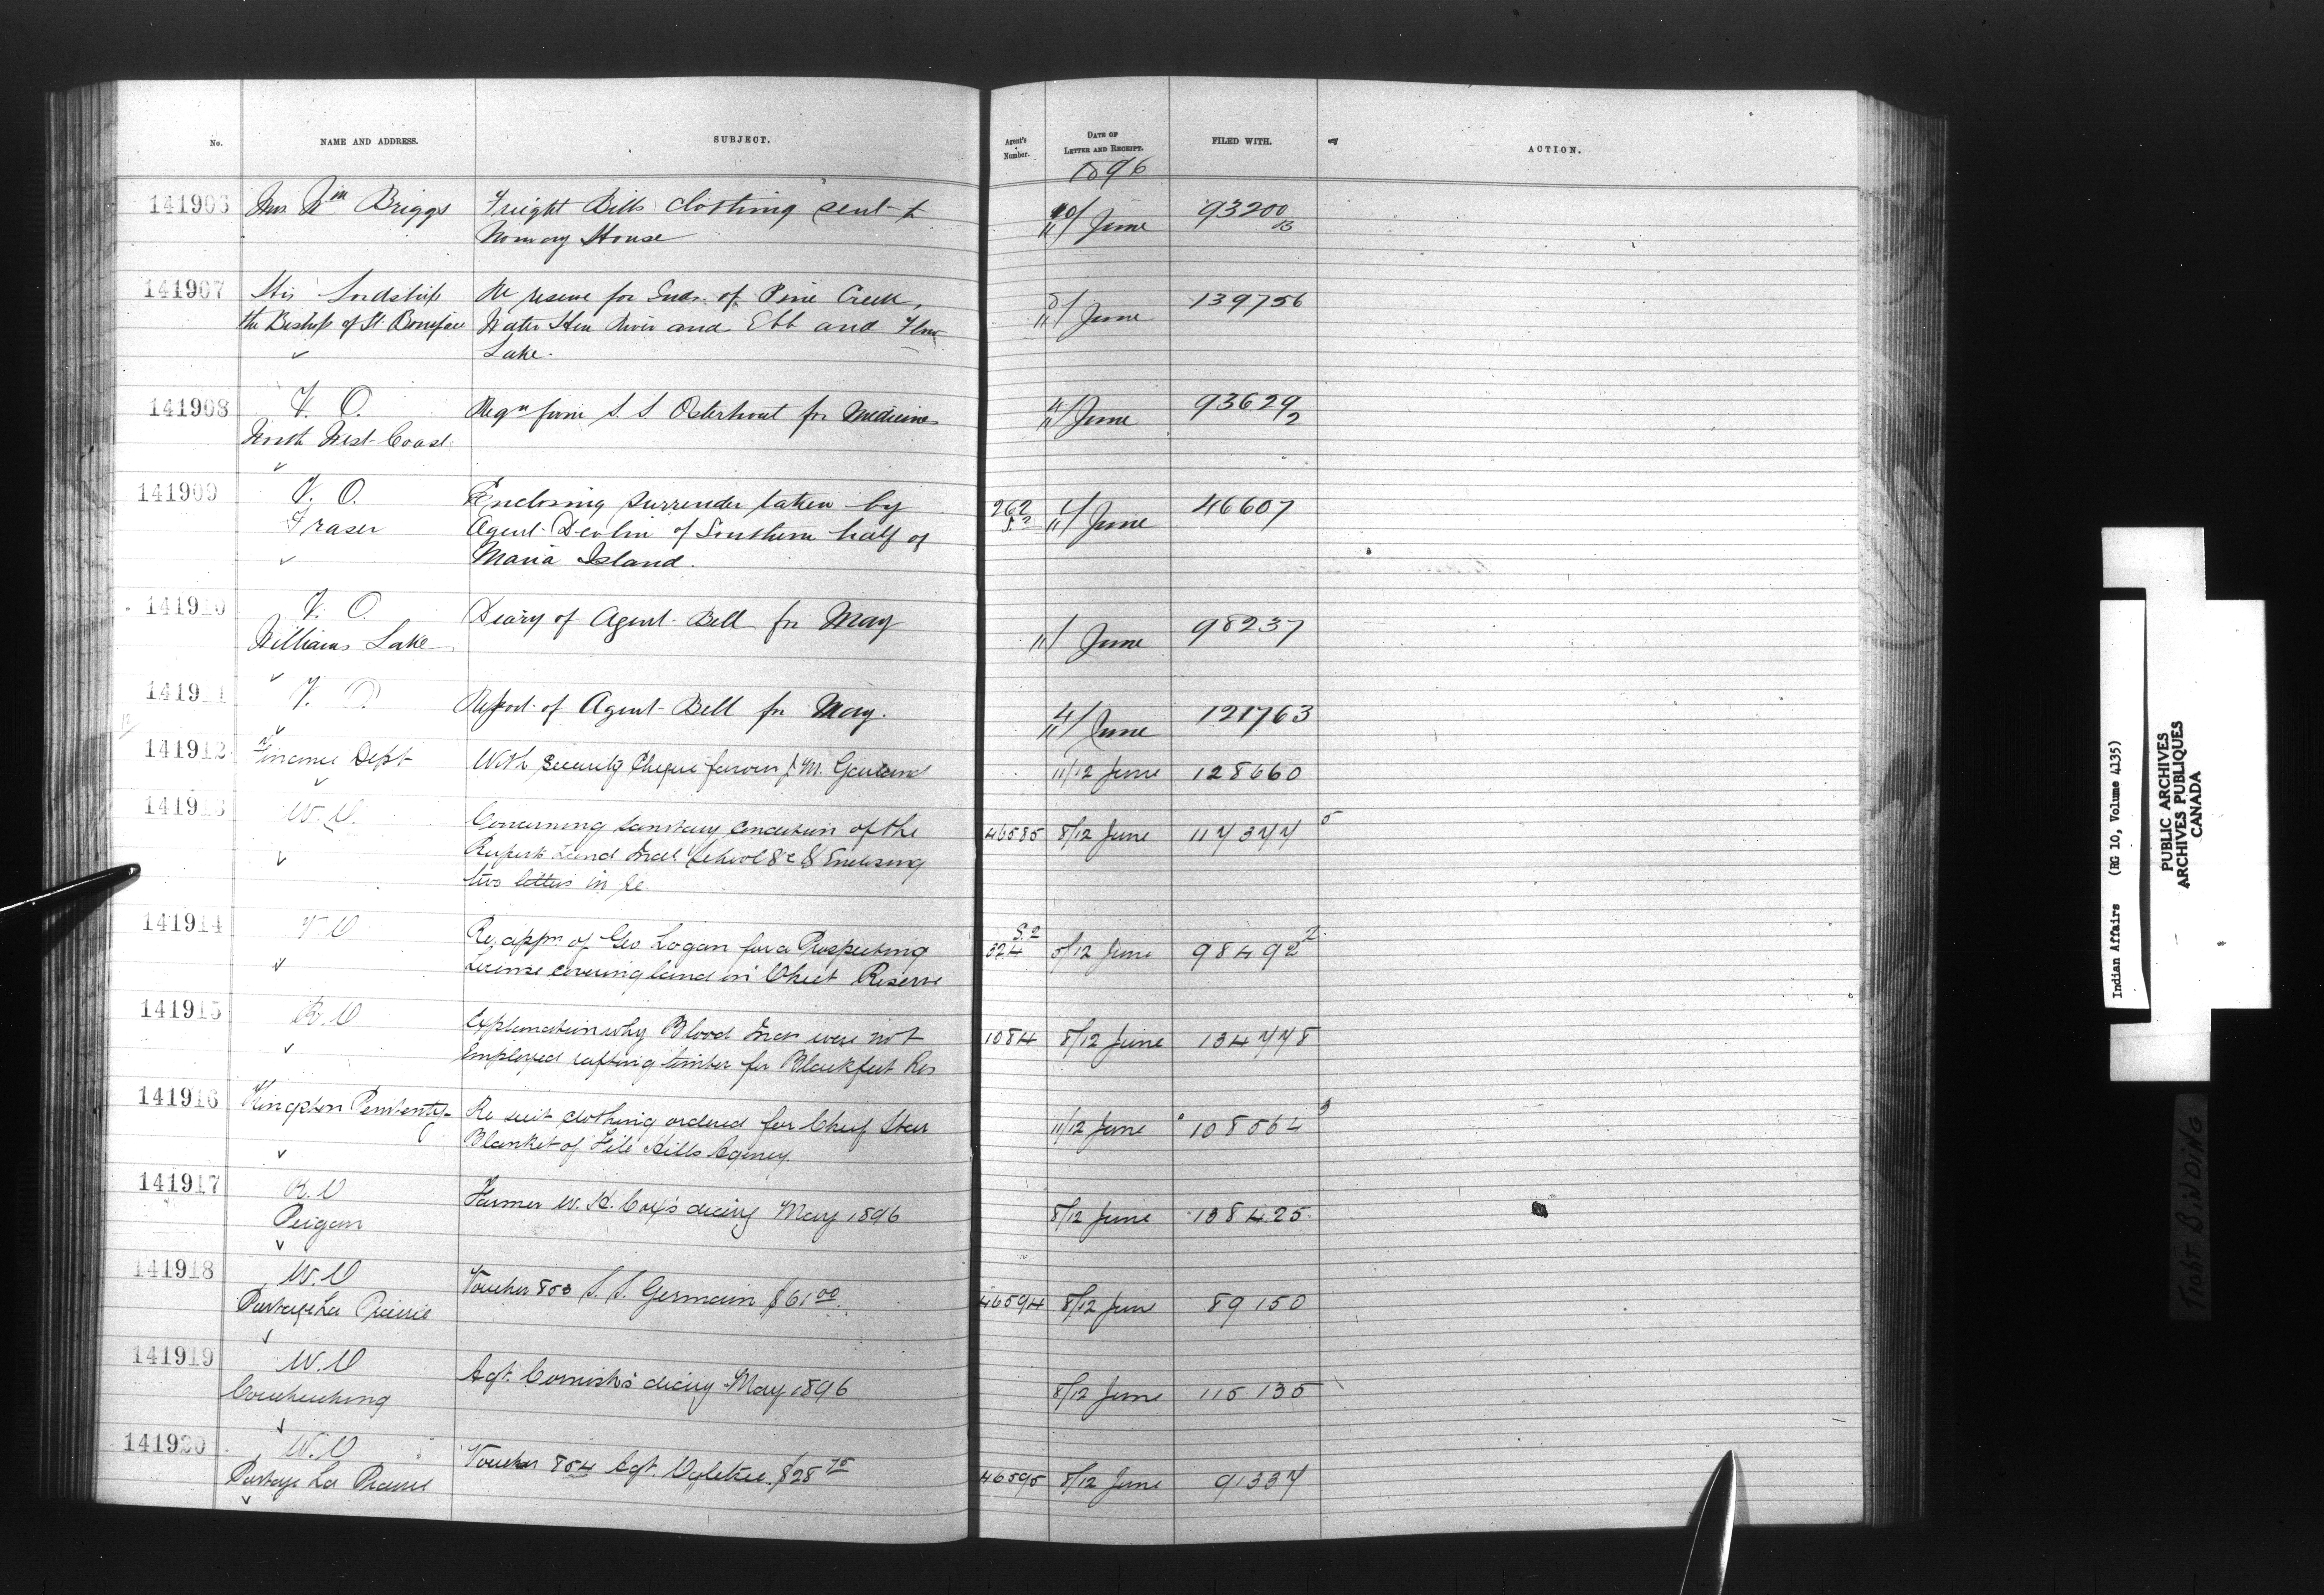 No. NAME AND ADDRESS. SUBJECT. Agent's Number. DATE OF LETTER AND RECEIPT. FILED WITH. ACTION.
1896
141906 Wm Briggs Freight Bills clothing sent to 10/11 June 93200 B
Norway House
141907 His Lordship Re reserve for Inds. of Pine Creek, 8/11 June 139756
the Bishop of St. Boniface Water Hen River and Ebb and Flow
Lake.
141908 V. O. Reqn from S. S Osterhout for Medicine 4/11 June 93629 2
North West Coast
141909 V. O. Enclosing surrender taken by 262 1/11 June 46607
Fraser Agent Devlin of Southern half of
Maria Island.
141910 V. O. Diary of Agent Bell for May 1/11 June 98237
Williams Lake
141911 V. O Report of Agent Bell for May. 4/11 June 121763
141912 Finance Dept With security Cheque favour J. M. Garland 11/12 June 128660
141913 W.O. Concerning sanitary condition of the 46585 8/12 June 117377 5
Ruperts Land Indl School &c & Enclosing
two letters in re
141914 V O Re. appn of Geo Logan for a Prospecting 324 S.2 5/12 June 98492 2
License covering land in Ohiet Reserve
141915 R.O Explanation why Blood Inds were not 1084 8/12 June 134778
Employed rafting timber for Blackfeet Res
141916 Kingston Penitenty Re suit clothing ordered for Chief Star 11/12 June 108564 3
Blanket of File Hills Agency.
141917 R.O Farmer W. H. Cox's diary May 1896 8/12 June 138425
Peigan
141918 W.O Voucher 853 S. S. Germain $61 00 46594 8/12 June 89150
Portage La Prairie
141919 W.O Agt. Cornish's diary May 1896 8/12 June 115135
Coucheeching
141920 W.O Voucher 854 Agt. Ogletree $28 75 46595 8/12 June 91337
Portage La Prairie
Indian Affairs (RG 10, Volume 4135)
PUBLIC ARCHIVES
ARCHIVES PUBLIQUES
CANADA
TIGHT BINDING